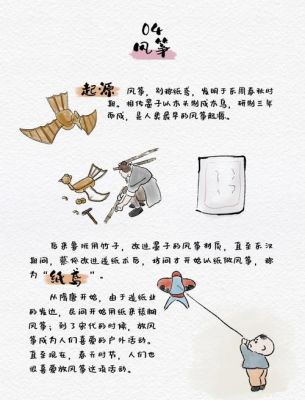 04
风筝
起源
风筝，别称纸鸢，发明于东周春秋时
期。相传墨子以木头制成木鸟，研制三年
而成，是人类最早的风筝起源。
后来鲁班用竹子，改进墨子的风筝材质，直至东汉
期间，蔡伦改进造纸术后，坊间才开始以纸做风筝，称
为“纸鸢”。
从隋唐开始，由于造纸业
的发达，民间开始用纸来裱糊
风筝；到了宋代的时候，放风
筝成为人们喜爱的户外活动。
直至现在，春天时节，人们也
很喜爱放风筝这项活动。